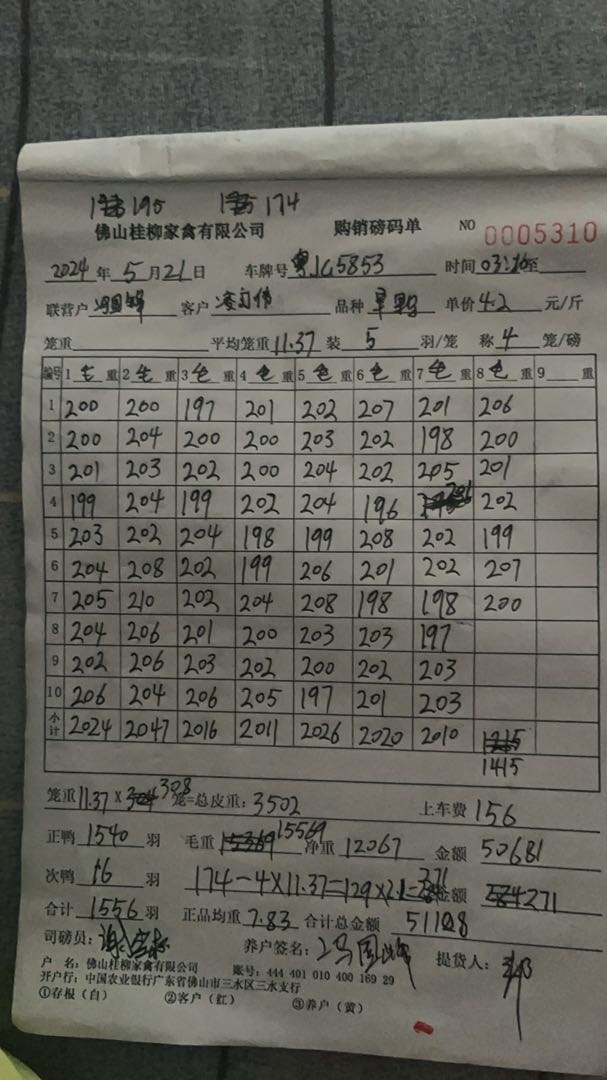 195 174
佛山桂柳家禽有限公司 购销磅码单 NO 0005310
2024年5月21日 车牌号 粤JG5853 时间 03:20至
联营户 客户 品种 单价 4.2 元/斤
笼重 平均笼重 11.37 装 5 羽/笼 称 4 笼/磅
编号 1 毛 重 2 毛 重 3 毛 重 4 毛 重 5 毛 重 6 毛 重 7 毛 重 8 毛 重 9 重
1 200 200 197 201 202 207 201 206
2 200 204 200 200 203 202 198 200
3 201 203 202 200 204 202 205 201
4 199 204 199 202 204 196 201 202
5 203 202 204 198 199 208 202 199
6 204 208 202 199 206 201 202 207
7 205 210 202 204 208 198 198 200
8 204 206 201 200 203 203 197
9 202 206 203 202 200 202 203
10 206 204 206 205 197 201 203
小计 2024 2047 2016 2011 2026 2020 2010 1215
1415
笼重 11.37 × 304 308 笼=总皮重: 3502 上车费 156
正鸭 1540 羽 毛重 15369 15569 净重 12067 金额 50681
次鸭 16 羽 174-4×11.37=129×2.1=271 金额 271
合计 1556 羽 正品均重 7.83 合计总金额 51108
司磅员: 养户签名: 冯国峰 提货人:
户 名: 佛山桂柳家禽有限公司 账号: 444 401 010 400 169 29
开户行: 中国农业银行广东省佛山市三水区三水支行
①存根(白) ②客户(红) ③养户(黄)